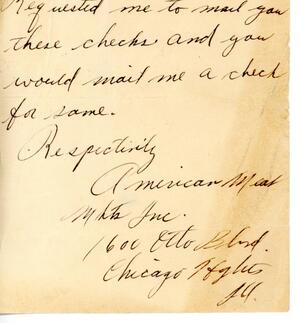 Requested me to mail you
these checks and you
would mail me a check
for same.
Respectively
American Meat
Mkts Inc.
1600 Otto Blvd.
Chicago Hghts
Ill.